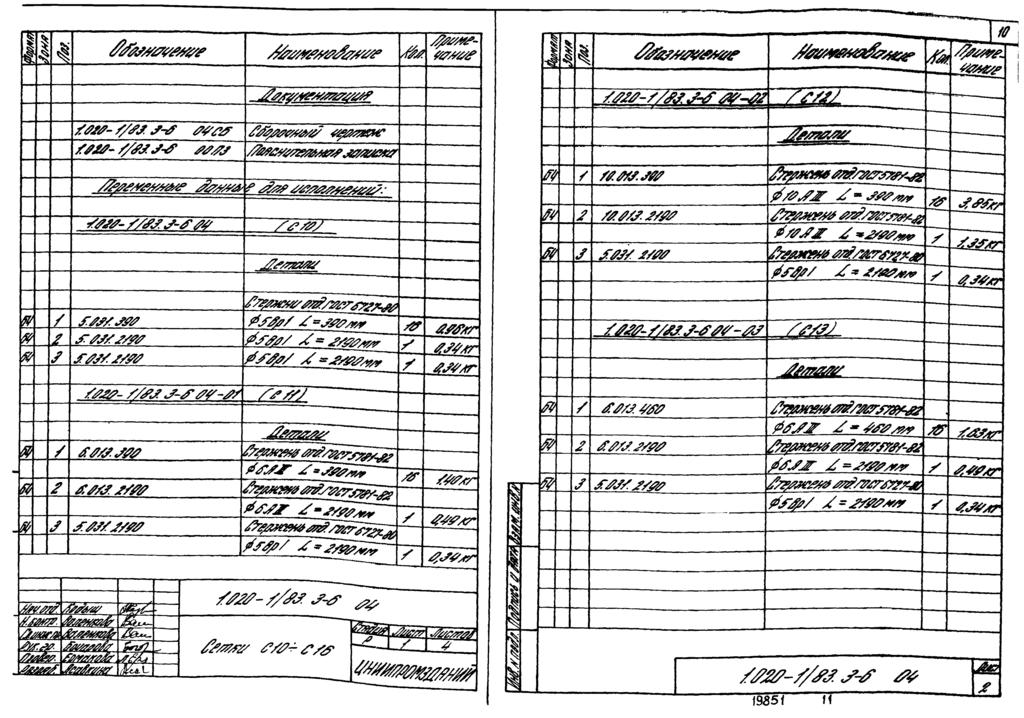 Формат Зона Поз. Обозначение Наименование Кол. Примечание
Документация
1.020-1/83.3-6 04СБ Сборочный чертеж
1.020-1/83.3-6 00ПЗ Пояснительная записка
Переменные данные для исполнений:
1.020-1/83.3-6 04 (С10)
Детали
Стержни отд. ГОСТ 6727-80
БЧ 1 5.031.390 ф5Вр1 L=390мм 16 0,96кг
БЧ 2 5.031.2190 ф5Вр1 L=2190мм 1 0,34кг
БЧ 3 5.031.2190 ф5Вр1 L=2190мм 1 0,34кг
1.020-1/83.3-6 04-01 (С11)
Детали
БЧ 1 6.013.390 Стержень отд. ГОСТ 5781-82
ф6АIII L=390мм 16 1,40кг
БЧ 2 6.013.2190 Стержень отд. ГОСТ 5781-82
ф6АIII L=2190мм 1 0,49кг
БЧ 3 5.031.2190 Стержень отд. ГОСТ 6727-80
ф5Вр1 L=2190мм 1 0,34кг
1.020-1/83.3-6 04
Нач.отд.
Н.контр.
Рук.гр.
Провер. Ермакова
Разраб.
Сетки С10÷С16
Стадия Лист Листов
Р 1 4
ЦНИИПРОМЗДАНИЙ
10
Формат Зона Поз. Обозначение Наименование Кол. Примечание
1.020-1/83.3-6 04-02 (С12)
Детали
БЧ 1 10.013.390 Стержень отд. ГОСТ 5781-82
ф10АIII L=390мм 16 3,85кг
БЧ 2 10.013.2190 Стержень отд. ГОСТ 5781-82
ф10АIII L=2190мм 1 1,35кг
БЧ 3 5.031.2190 Стержень отд. ГОСТ 6727-80
ф5Вр1 L=2190мм 1 0,34кг
1.020-1/83.3-6 04-03 (С13)
Детали
БЧ 1 6.013.460 Стержень отд. ГОСТ 5781-82
ф6АIII L=460мм 16 1,63кг
БЧ 2 6.013.2190 Стержень отд. ГОСТ 5781-82
ф6АIII L=2190мм 1 0,49кг
БЧ 3 5.031.2190 Стержень отд. ГОСТ 6727-80
ф5Вр1 L=2190мм 1 0,34кг
Инв.№подл. Подпись и дата Взам.инв.№
1.020-1/83.3-6 04
Лист
2
19851 11